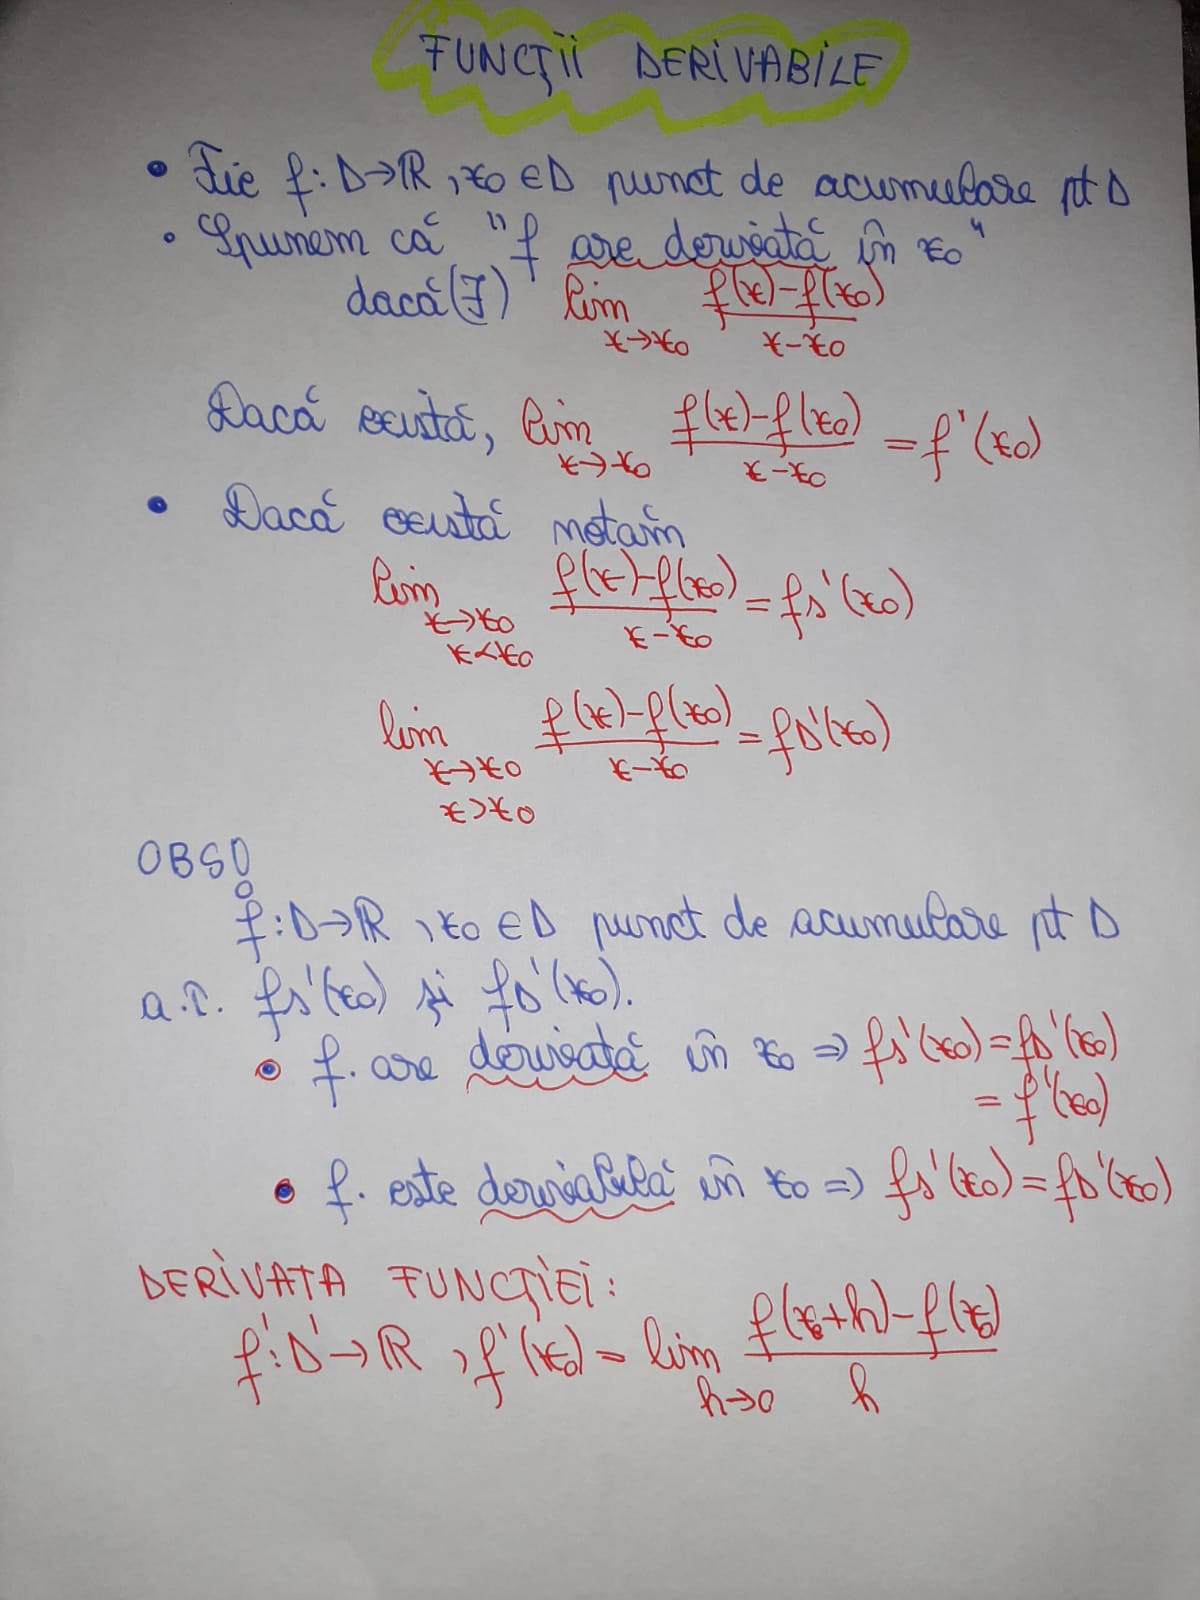 FUNCȚII DERIVABILE
• Fie f: D→ℝ, x₀ ∈ D punct de acumulare pt D
• Spunem că "f are derivată în x₀"
dacă (∃) lim x→x₀ (f(x)-f(x₀))/(x-x₀)
Dacă există, lim x→x₀ (f(x)-f(x₀))/(x-x₀) = f'(x₀)
• Dacă există notăm
lim x→x₀ x<x₀ (f(x)-f(x₀))/(x-x₀) = fs'(x₀)
lim x→x₀ x>x₀ (f(x)-f(x₀))/(x-x₀) = fD'(x₀)
OBS!
f: D→ℝ, x₀ ∈ D punct de acumulare pt D
a.î. fs'(x₀) și fD'(x₀).
• f. are derivată în x₀ => fs'(x₀) = fD'(x₀)
= f'(x₀)
• f. este derivabilă în x₀ => fs'(x₀) = fD'(x₀)
DERIVATA FUNCȚIEI:
f': D'→ℝ, f'(x₀) = lim h→0 (f(x₀+h)-f(x₀))/h